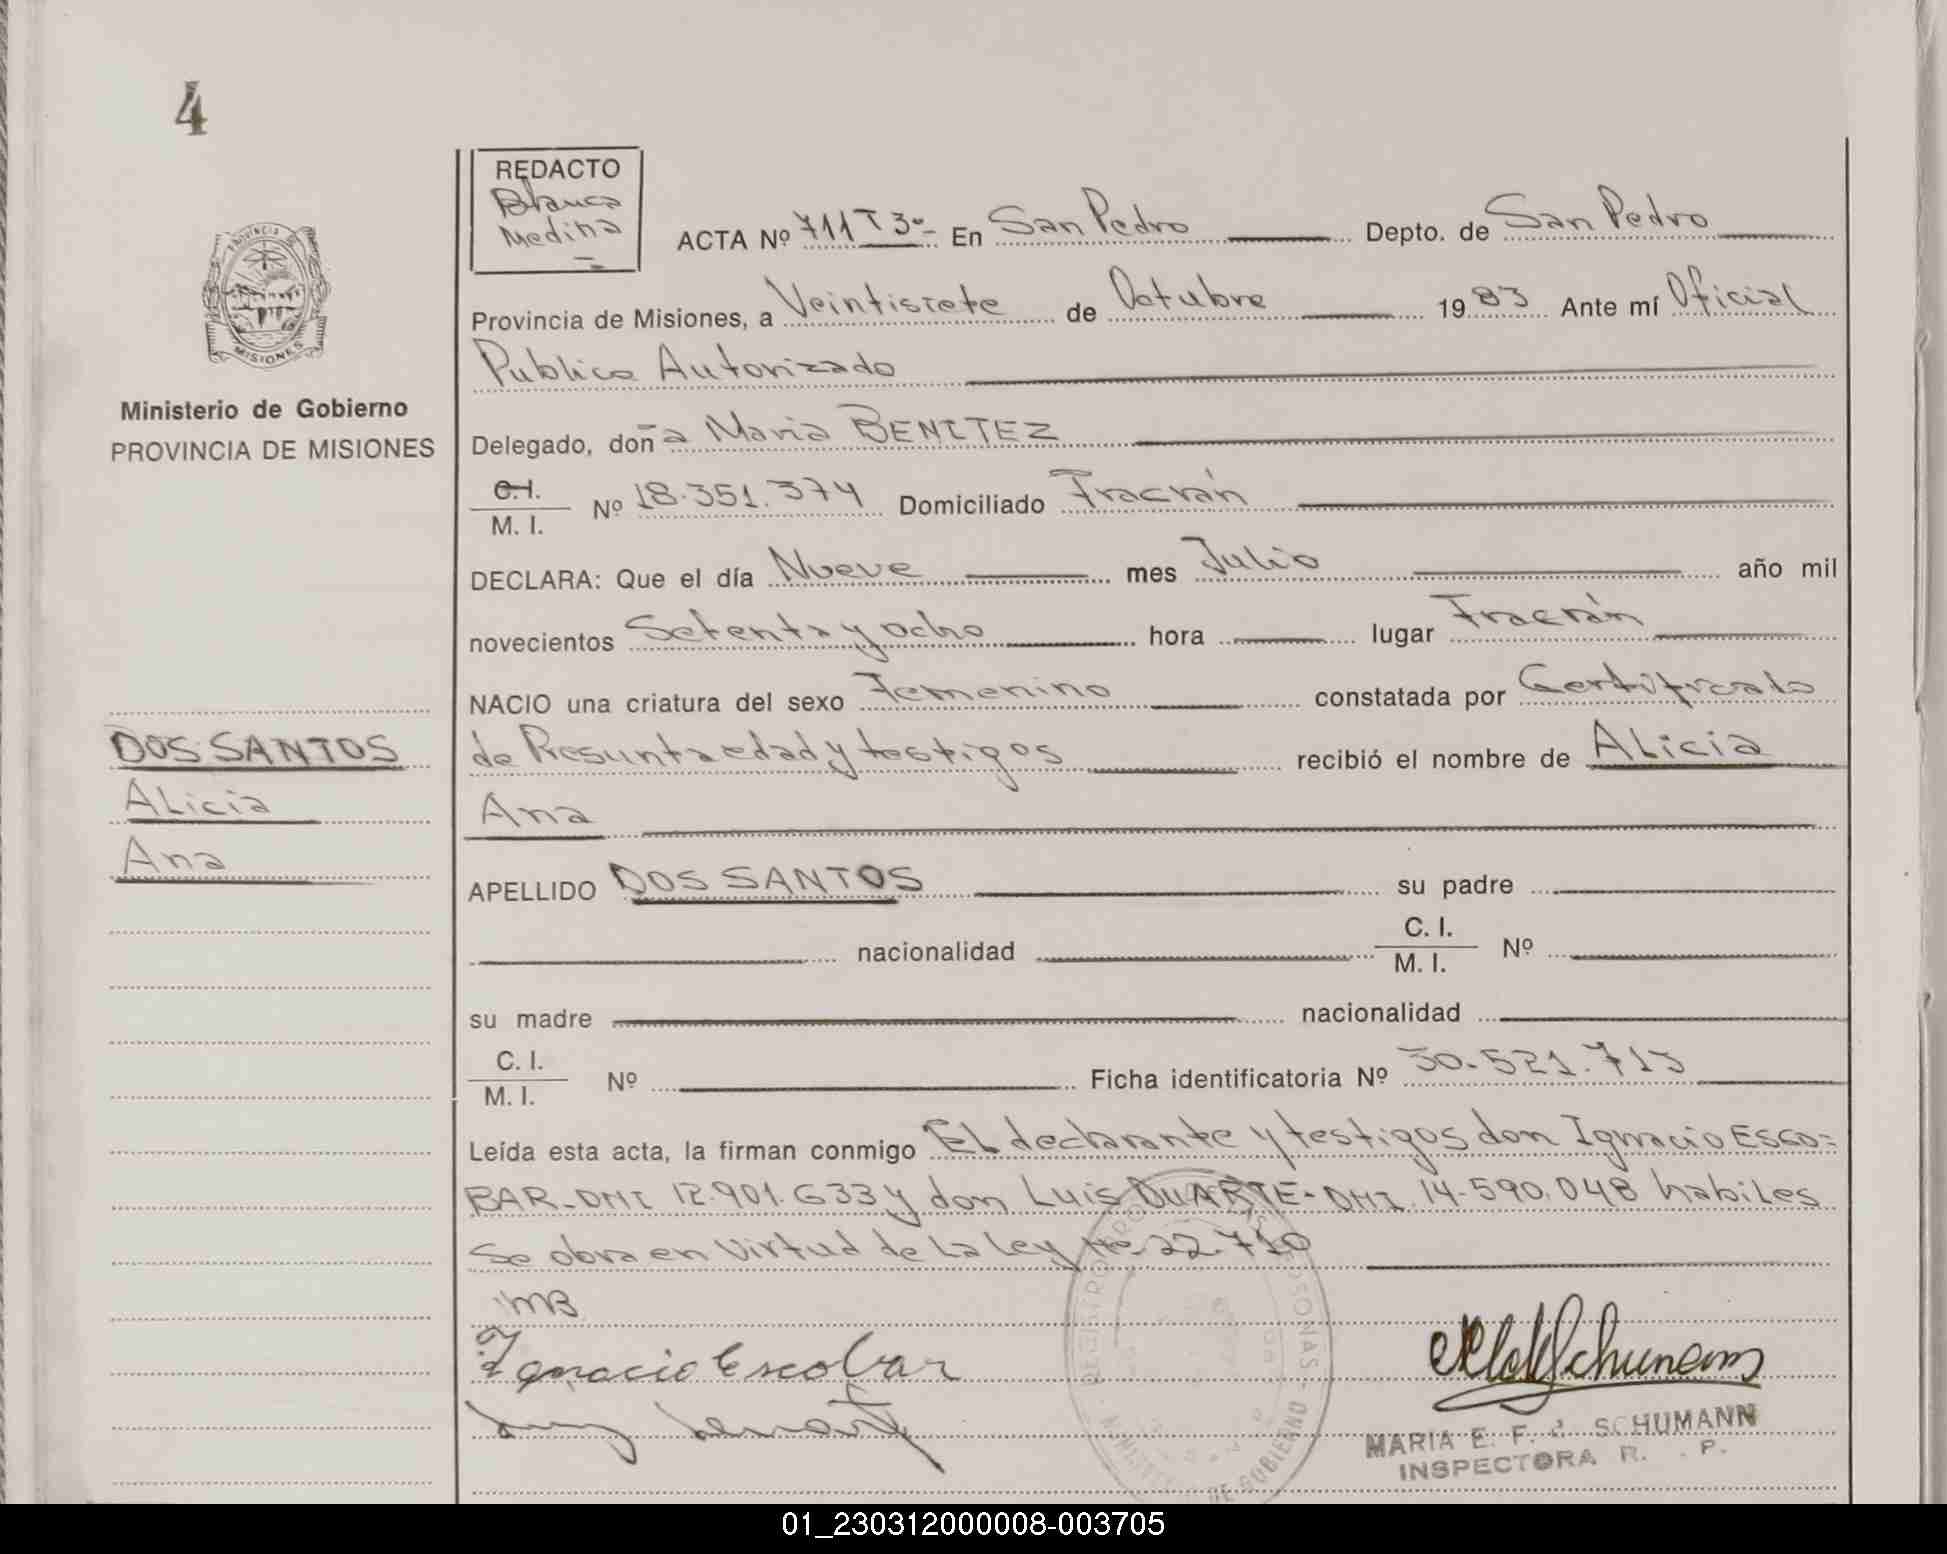 4
REDACTO
Blanca
Medina
ACTA Nº 711 T 3º- En San Pedro Depto. de San Pedro
Provincia de Misiones, a Veintisiete de Octubre 1983 Ante mí Oficial
Publico Autorizado
Delegado, doña Maria BENITEZ
C.I.
M. I. Nº 18.351.374 Domiciliado Fracrán
DECLARA: Que el día Nueve mes Julio año mil
novecientos Setenta y ocho hora lugar Fracrán
NACIO una criatura del sexo Femenino constatada por Certificado
de Presunta edad y testigos recibió el nombre de ALicia
Ana
APELLIDO DOS SANTOS su padre
nacionalidad C. I.
M. I. Nº
su madre nacionalidad
C. I.
M. I. Nº Ficha identificatoria Nº 30.521.713
Leída esta acta, la firman conmigo El declarante y testigos don Ignacio ESCO=
BAR-DNI 12.901.633 y don Luis DUARTE-DNI 14-590.048 habiles
Se obra en virtud de la Ley Nº 22.710
MB
Ignacio Escobar
MARIA E. F. SCHUMANN
INSPECTORA R. P.
PROVINCIA
MISIONES
Ministerio de Gobierno
PROVINCIA DE MISIONES
DOS SANTOS
ALicia
Ana
01_230312000008-003705